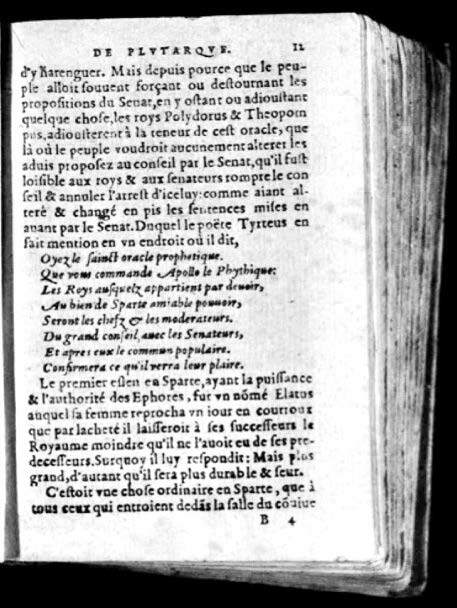 DE PLVTARQVE. 12
d'y harenguer. Mais depuis pource que le peu-
ple alloit souuent forçant ou destournant les
propositions du Senat, en y ostant ou adioustant
quelque chose, les roys Polydorus & Theopom
pus, adiousterent à la teneur de cest oracle, que
là où le peuple voudroit aucunement alterer les
aduis proposez au conseil par le Senat, qu'il fust
loisible aux roys & aux senateurs rompre le con
seil & annuler l'arrest d'iceluy: comme aiant al-
teré & changé en pis les sentences mises en
auant par le Senat. Duquel le poëte Tyrteus en
fait mention en vn endroit où il dit,
Oyez le sainct oracle prophetique.
Que vous commande Apollo le Phythique:
Les Roys ausquelz appartient par deuoir,
Au bien de Sparte amiable pouuoir,
Seront les chefz & les moderateurs.
Du grand conseil, auec les Senateurs,
Et apres eux le commun populaire.
Confirmera ce qu'il verra leur plaire.
Le premier eslen en Sparte, ayant la puissance
& l'authorité des Ephores, fut vn nōmé Elatus
auquel sa femme reprocha vn iour en courroux
que par lacheté il laisseroit à ses successeurs le
Royaume moindre qu'il ne l'auoit eu de ses pre-
decesseurs. Surquoy il luy respondit: Mais plus
grand, d'autant qu'il sera plus durable & seur.
C'estoit vne chose ordinaire en Sparte, que à
tous ceux qui entroient dedās la salle du cōuiue
B 4